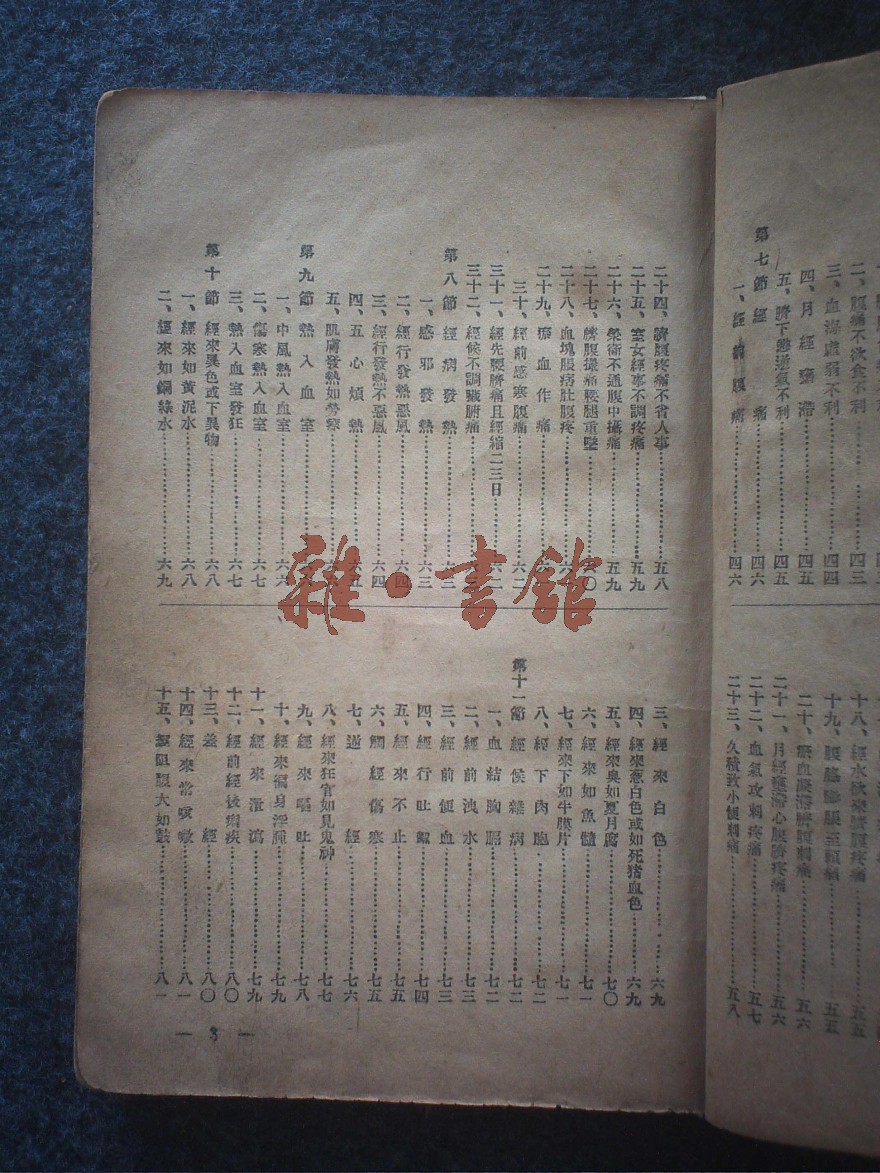 二、腹痛不欲食不利……四三
三、血海虛弱不利……四四
四、月經壅滯……四五
五、臍下憋逆氣不利……四五
第七節 經痛……四六
一、經前腹痛……四六
十八、經水欲來臍腹疼痛……五五
十九、腰脇膨脹至頭痛……五五
二十、瘀血凝滯臍腹刺痛……五六
二十一、月經壅滯心腹臍疼痛……五六
二十二、血氣攻刺疼痛……五七
二十三、久積致小便刺痛……五八
二十四、臍腹疼痛不省人事……五八
二十五、室女經事不調疼痛……五九
二十六、榮衛不通腹中攝痛……五九
二十七、臍腹撮痛腰腿重墜……六〇
二十八、血塊膜痞肚腹疼……六
二十九、瘀血作痛……六
三十、經前感寒腹痛……六二
三十一、經先腰臍痛且經縮二三日……六二
三十二、經候不調臟腑痛……
第八節 經病發熱……六三
一、感邪發熱……六三
二、經行發熱惡風……六四
三、經行發熱不惡風……六四
四、五心煩熱……六五
五、肌膚發熱如勞瘵……六
第九節 熱入血室……六
一、中風熱入血室……六六
二、傷寒熱入血室……六七
三、熱入血室發狂……六七
第十節 經來異色或下異物……六八
一、經來如黃泥水……六八
二、經來如銅綠水……六九
三、經來白色……六九
四、經來葱白色或如死猪血色……六九
五、經來臭如夏月腐……七〇
六、經來如魚髓……七一
七、經來下如牛膜片……七一
八、經下肉胞……七二
第十一節 經候雜病……七二
一、血結胸膈……七二
二、經前洩水……七三
三、經前便血……七三
四、經行吐衄……七四
五、經來不止……七五
六、觸經傷寒……七五
七、逆經……七六
八、經來狂言如見鬼神……七七
九、經來嘔吐……七八
十、經來徧身浮腫……七九
十一、經來泄瀉……七九
十二、經前經後痢疾……八〇
十三、差經……八〇
十四、經來常咳嗽……八一
十五、經阻腹大如鼓……八一
— 3 —
雜·書館